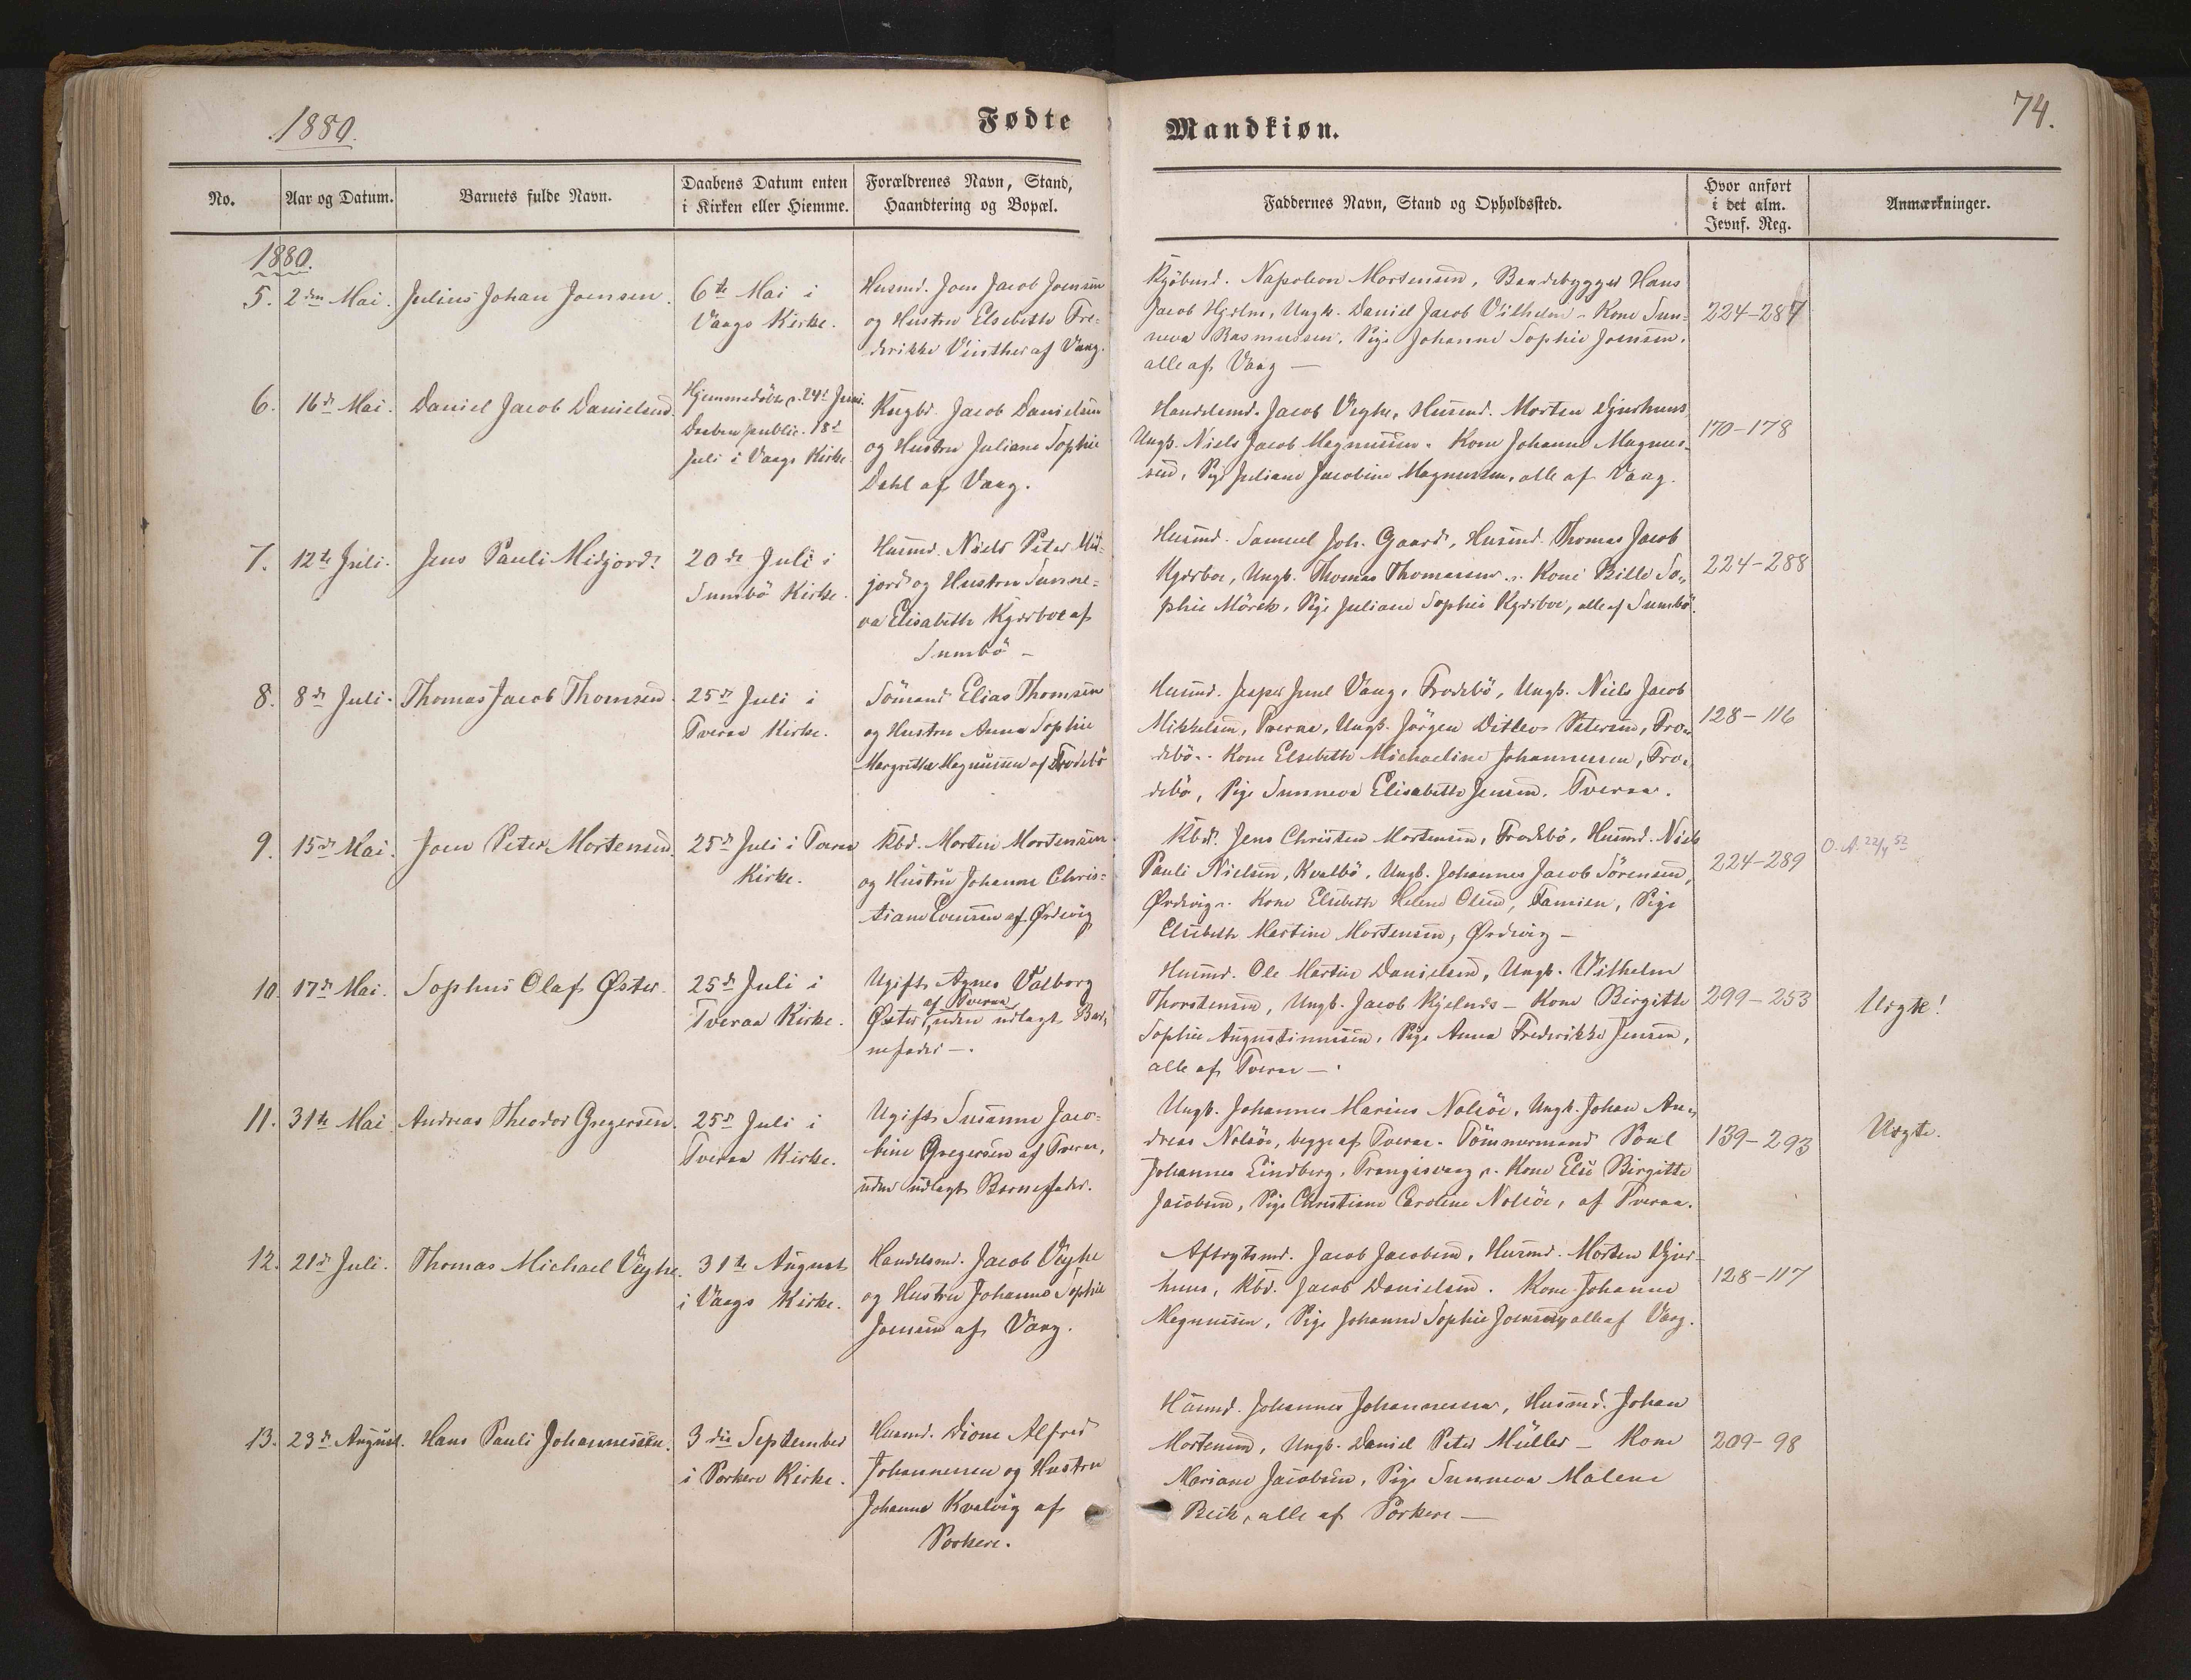 1880.
Fødte
Mandkiøn.
74.
No.
Aar og Datum.
Barnets fulde Navn.
Daabens Datum enten
i Kirken eller Hiemme.
Forældrenes Navn, Stand,
Haandtering og Bopæl.
Faddernes Navn, Stand og Opholdssted.
Hvor anført
i det alm.
Jevnf. Reg.
Anmærkninger.
1880.
5.
2den Mai.
Julius Johan Joensen.
6te Mai i
Vaags Kirke.
Husmd. Joen Jacob Joensen
og Hustru Elsebeth Fre-
derikke Vinther af Vaag.
Kjøbmd. Napoleon Mortensen, Baadebygger Hans
Jacob Hjelm, Ungk. Daniel Jacob Vilhelm - Kone Sun-
neva Rasmussen, Pige Johanne Sophie Joensen,
alle af Vaag —
224-287
6.
16de Mai.
Daniel Jacob Danielsen.
Hjemmedöbt d. 24de Juni.
Daaben public. 18de
Juli i Vaags Kirke.
Kngbd. Jacob Danielsen
og Hustru Juliane Sophie
Dahl af Vaag.
Handelsmd. Jacob Veyhe, Husmd. Morten Djurhuus
Ungk. Niels Jacob Magnussen. Kone Johanne Magnus-
sen, Pige Juliane Jacobine Magnussen, alle af Vaag.
170-178
7.
12te Juli.
Jens Pauli Midjord.
20de Juli i
Sumbö Kirke.
Husmd. Niels Peter Mid-
jord og Hustru Sunne-
va Elisabeth Kjærboe af
Sumbö -
Husmd. Samuel Joh. Gaard, Husmd. Thomas Jacob
Kjærboe, Ungk. Thomas Thomassen. Kone Bille So-
phie Mörck, Pige Juliane Sophie Kjærboe, alle af Sumbö.
224-288
8.
8de Juli.
Thomas Jacob Thomsen.
25de Juli i
Tveraa Kirke.
Sömand Elias Thomsen
og Hustru Anna Sophie
Margrethe Magnussen af Frodebö
Husmd. Jesper Juul Vaag, Frodebö, Ungk. Niels Jacob
Mikkelsen, Tveraa, Ungk. Jörgen Ditlev Petersen, Fro-
debö. Kone Elsebeth Michaeline Johannessen, Fro-
debö, Pige Sunneva Elisabeth Jensen, Tveraa.
128-116
9.
15de Mai.
Joen Peter Mortensen.
25de Juli i Tveraa
Kirke.
Kbd. Morten Mortensen
og Hustru Johanne Chris-
tiane Evensen af Ørdevig
Kbd. Jens Christen Mortensen, Frodebö, Husmd. Niels
Pauli Nielsen, Kvalbö, Ungk. Johannes Jacob Sörensen,
Ørdevig. Kone Elsebeth Helene Olsen, Famien, Pige
Elsebeth Martine Mortensen, Ørdevig —
224-289
O.A. 22/4 52
10.
17de Mai.
Sophus Olaf Øster.
25de Juli i
Tveraa Kirke.
Ugift Agnes Valborg
af Tveraa
Øster, uden udlagt Bar-
nefader —.
Husmd. Ole Martin Danielsen, Ungk. Vilhelm
Thorstensen, Ungk. Jacob Kjelnæs - Kone Birgitte
Sophie Augustinussen, Pige Anna Frederikke Jensen,
alle af Tveraa —
299-253
Uægte!
11.
31te Mai
Andreas Theodor Gregersen.
25de Juli i
Tveraa Kirke.
Ugift Susanne Jaco-
bine Gregersen af Tveraa,
uden udlagt Barnefader.
Ungk. Johannes Marius Nolsöe, Ungk. Johan An-
dreas Nolsöe, begge af Tveraa. Tömmermand Poul
Johannes Lindberg, Trangisvaag. Kone Else Birgitte
Jacobsen, Pige Christiane Caroline Nolsöe, af Tveraa.
139-293
Uægte.
12.
21de Juli.
Thomas Michael Veyhe.
31te August
i Vaags Kirke.
Handelsmd. Jacob Veyhe
og Hustru Johanne Sophie
Joensen af Vaag.
Aftægtsmd. Jacob Jacobsen, Husmd. Morten Djur-
huus, Kbd. Jacob Danielsen. Kone Johanne
Magnussen, Pige Johanne Sophie Joensen, alle af Vaag.
128-117
13.
23de August.
Hans Pauli Johannessen.
3die September
i Porkere Kirke.
Husmd. Dione Alfred
Johannessen og Hustru
Johanne Kvalvig af
Porkere.
Husmd. Johannes Johannessen, Husmd. Johan
Mortensen, Ungk. Daniel Peter Müller - Kone
Mariane Jacobsen, Pige Sunneva Malene
Bech, alle af Porkere —
209-98